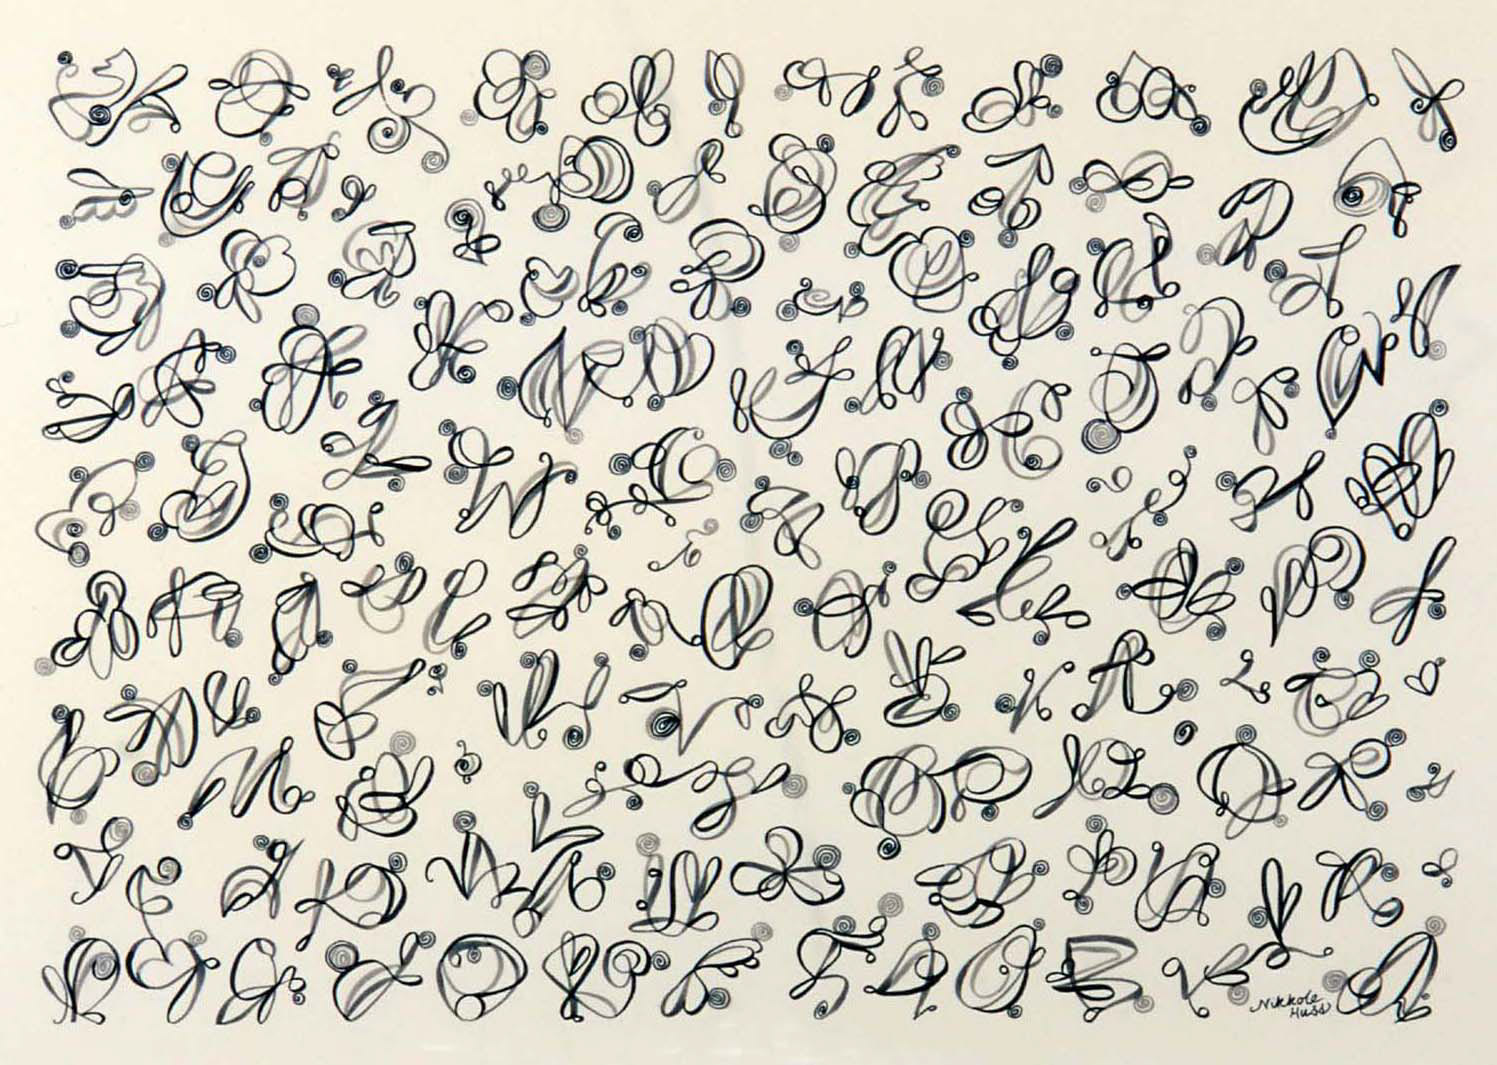 Nikkole
Huss